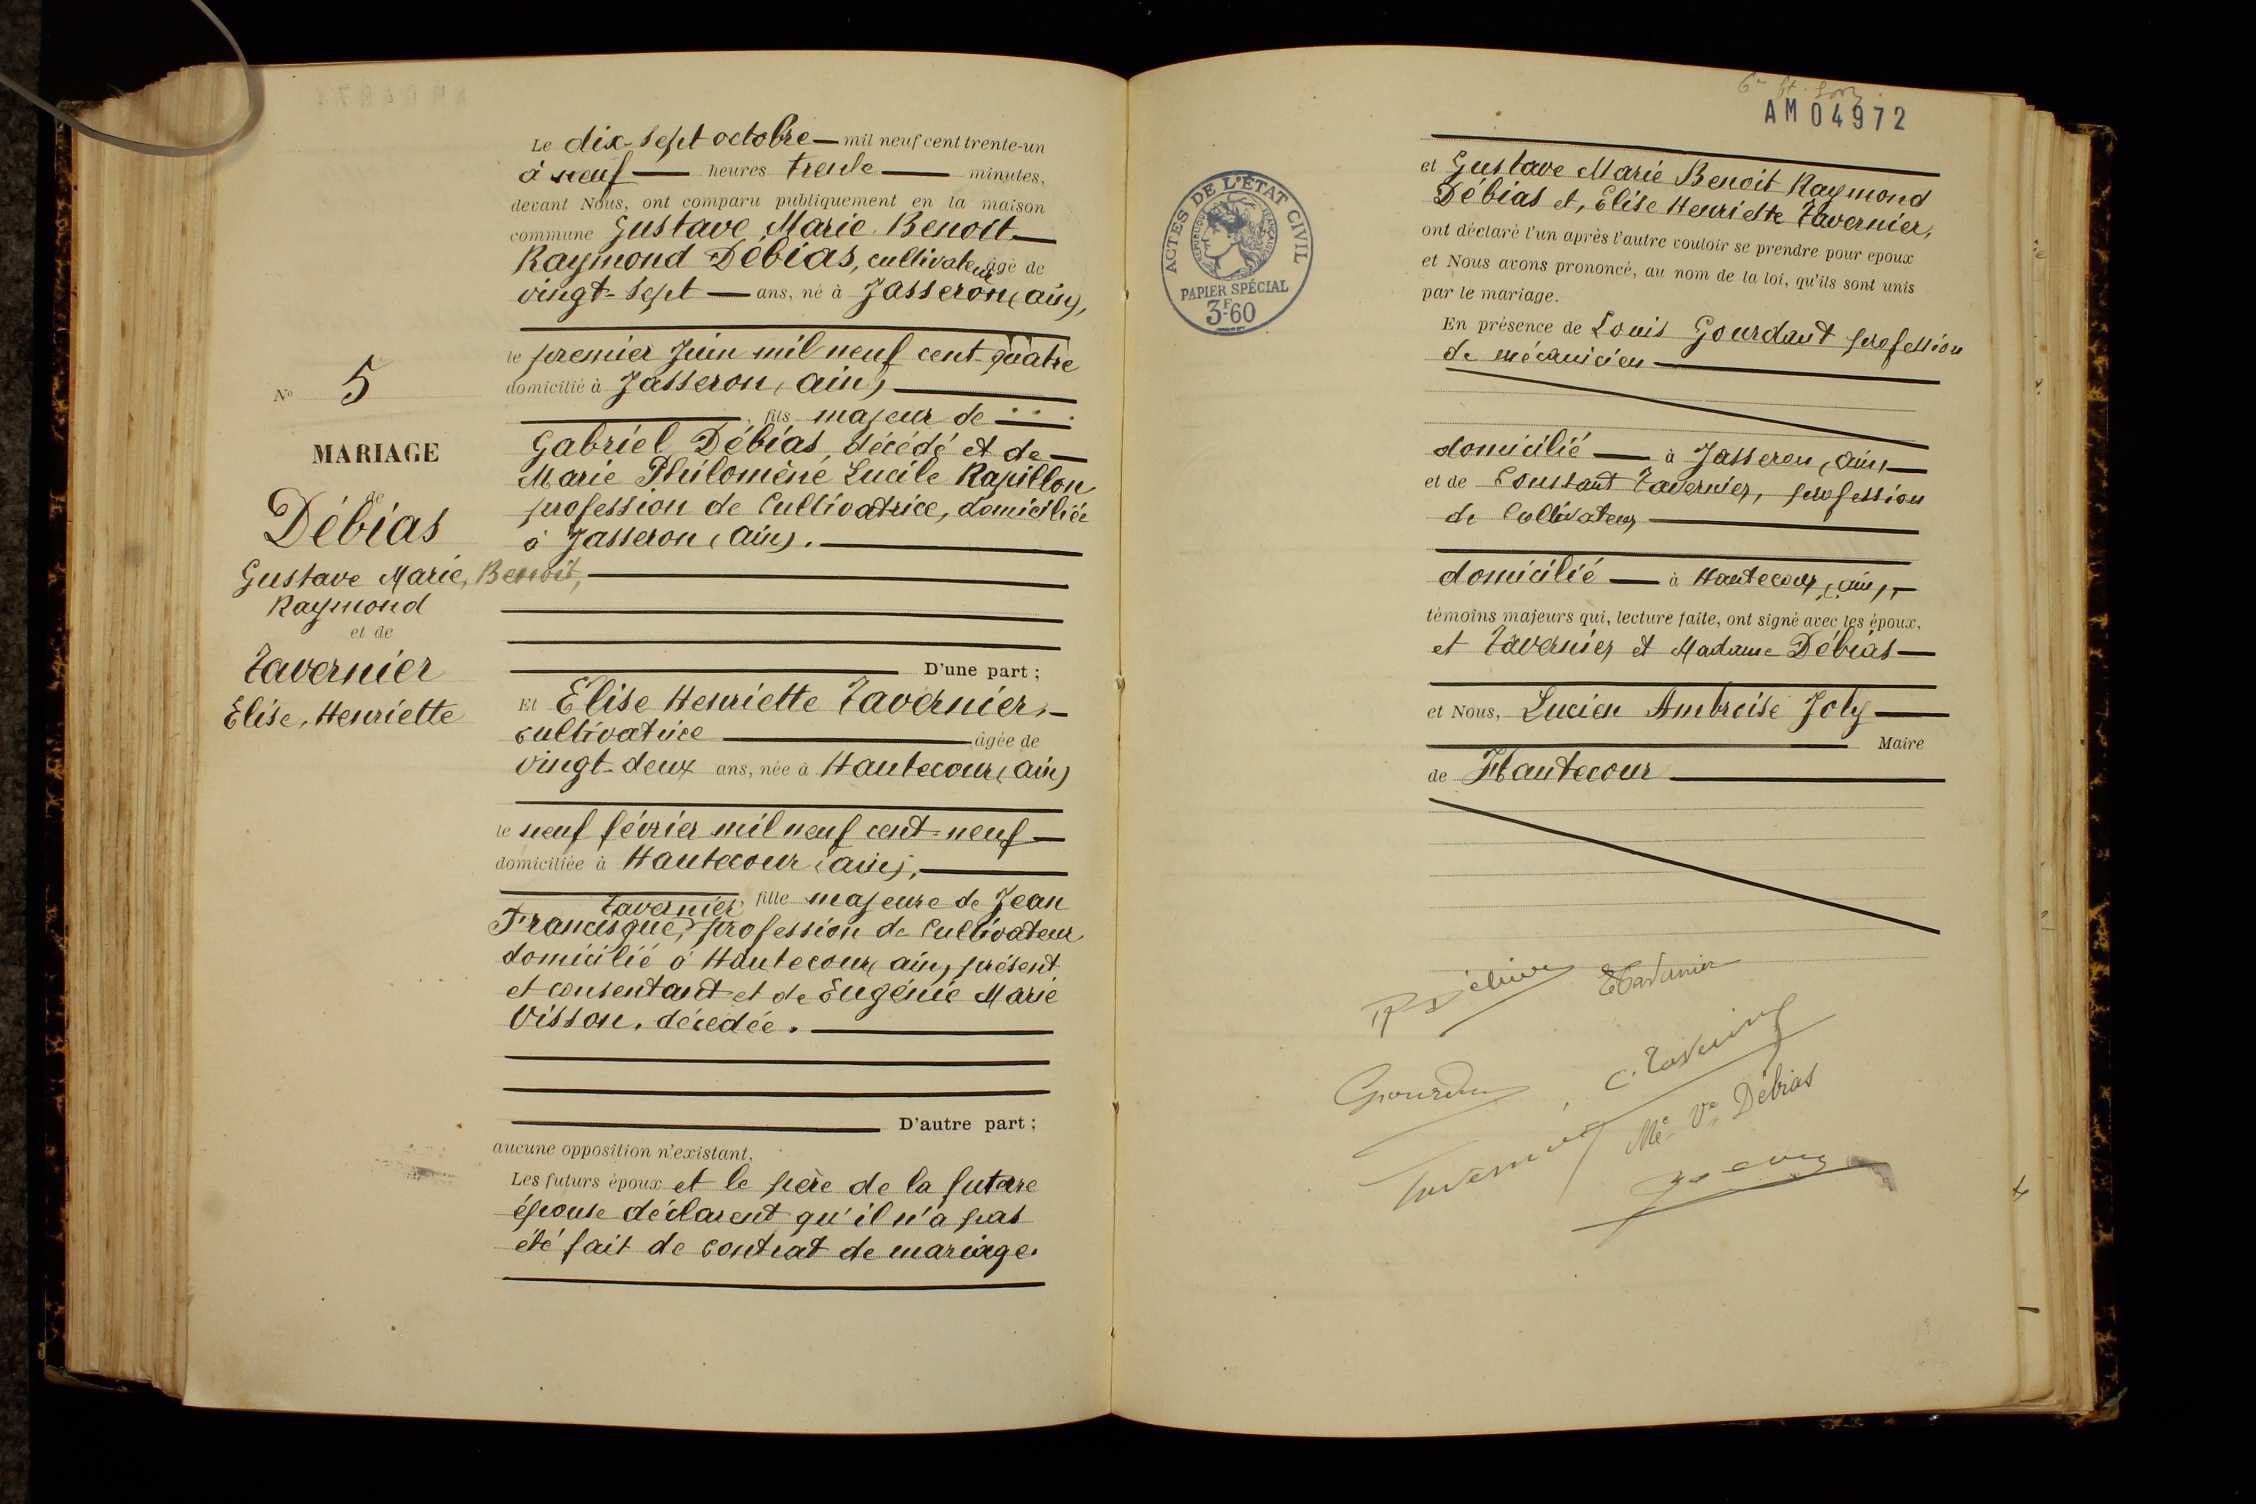 N° 5
MARIAGE
de
Débias
Gustave Marie, Benoit,
Raymond
et de
Tavernier
Elise, Henriette
Le dix-sept octobre — mil neuf cent trente-un
à neuf — heures trente — minutes,
devant Nous, ont comparu publiquement en la maison
commune Gustave Marie Benoit —
Raymond Débias, cultivateur âgé de
vingt-sept — ans, né à Jasseron (Ain),
le premier Juin mil neuf cent quatre
domicilié à Jasseron (Ain) —
, fils majeur de
Gabriel Débias, décédé et de —
Marie Philomène Lucile Rapillon,
profession de Cultivatrice, domiciliée
à Jasseron (Ain). —
D'une part ;
Et Elise Henriette Tavernier, —
cultivatrice — âgée de
vingt-deux ans, née à Hautecour (Ain)
le neuf février mil neuf cent-neuf —
domiciliée à Hautecour (Ain), —
, fille majeure de Jean
Tavernier
Francisque, profession de Cultivateur
domicilié à Hautecour (Ain), présent
et consentant et de Eugénie Marie
Visson, décédée. —
D'autre part ;
aucune opposition n'existant,
Les futurs époux et le père de la future
épouse déclarent qu'il n'a pas
été fait de contrat de mariage.
AM 04972
ACTES DE L'ÉTAT CIVIL
RÉPUBLIQUE FRANÇAISE
PAPIER SPÉCIAL
3F60
et Gustave Marie Benoit Raymond
Débias et, Elise Henriette Tavernier,
ont déclaré l'un après l'autre vouloir se prendre pour epoux
et Nous avons prononcé, au nom de la loi, qu'ils sont unis
par le mariage.
En présence de Louis Gourdant profession
de mécanicien —
domicilié — à Jasseron (Ain) —
et de Constant Tavernier, profession
de Cultivateur —
domicilié — à Hautecour (Ain), —
témoins majeurs qui, lecture faite, ont signé avec les époux,
et Tavernier et Madame Débias —
et Nous, Lucien Ambroise Joly —
Maire
de Hautecour —
R Débias
E Tavernier
C. Tavernier
Tavernier
Me Ve Débias